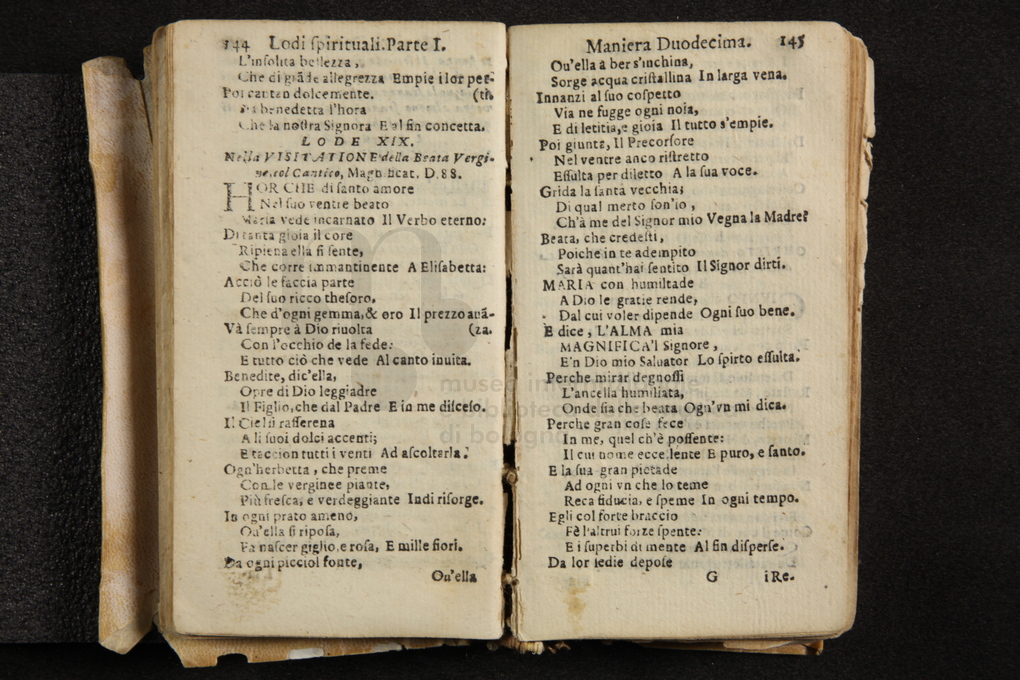 144 Lodi spirituali. Parte I.
L'insolita bellezza,
Che di grãde allegrezza Empie i lor pet-
Poi cantan dolcemente. (ti.
benedetta l'hora
Che la nostra Signora E al fin concetta.
LODE XIX.
Nella VISITATIONE della Beata Vergi-
ne, col Cantico, Magnificat. D. 88.
HOR CHE di santo amore
Nel suo ventre beato
Maria vede incarnato Il Verbo eterno:
Di tanta gioia il core
Ripiena ella si sente,
Che corre immantinente A Elisabetta:
Acciò le faccia parte
Del suo ricco thesoro,
Che d'ogni gemma, & oro Il prezzo auã-
Và sempre à Dio riuolta (za.
Con l'occhio de la fede:
E tutto ciò che vede Al canto inuita.
Benedite, dic'ella,
Opre di Dio leggiadre
Il Figlio, che dal Padre E in me disceso.
Il Ciel si rasserena
A li suoi dolci accenti;
E taccion tutti i venti Ad ascoltarla.
Ogn'herbetta, che preme
Con le verginee piante,
Più fresca, e verdeggiante Indi risorge.
In ogni prato ameno,
Ou'ella si riposa,
Fa nascer giglio, e rosa, E mille fiori.
Da ogni picciol fonte,
Ou'ella
Maniera Duodecima. 145
Ou'ella à ber s'inchina,
Sorge acqua cristallina In larga vena.
Innanzi al suo cospetto
Via ne fugge ogni noia,
E di letitia, e gioia Il tutto s'empie.
Poi giunta, Il Precorsore
Nel ventre anco ristretto
Essulta per diletto A la sua voce.
Grida la santa vecchia;
Di qual merto son'io,
Ch'à me del Signor mio Vegna la Madre?
Beata, che credesti,
Poiche in te adempito
Sarà quant'hai sentito Il Signor dirti.
MARIA con humiltade
A Dio le gratie rende,
Dal cui voler dipende Ogni suo bene.
E dice, L'ALMA mia
MAGNIFICA'l Signore,
E'n Dio mio Saluator Lo spirto essulta.
Perche mirar degnossi
L'ancella humiliata,
Onde fia che beata Ogn'vn mi dica.
Perche gran cose fece
In me, quel ch'è possente:
Il cui nome eccellente E puro, e santo.
E la sua gran pietade
Ad ogni vn che lo teme
Reca fiducia, e speme In ogni tempo.
Egli col forte braccio
Fè l'altrui forze spente:
E i superbi di mente Al fin disperse.
Da lor sedie depose
G i Re.